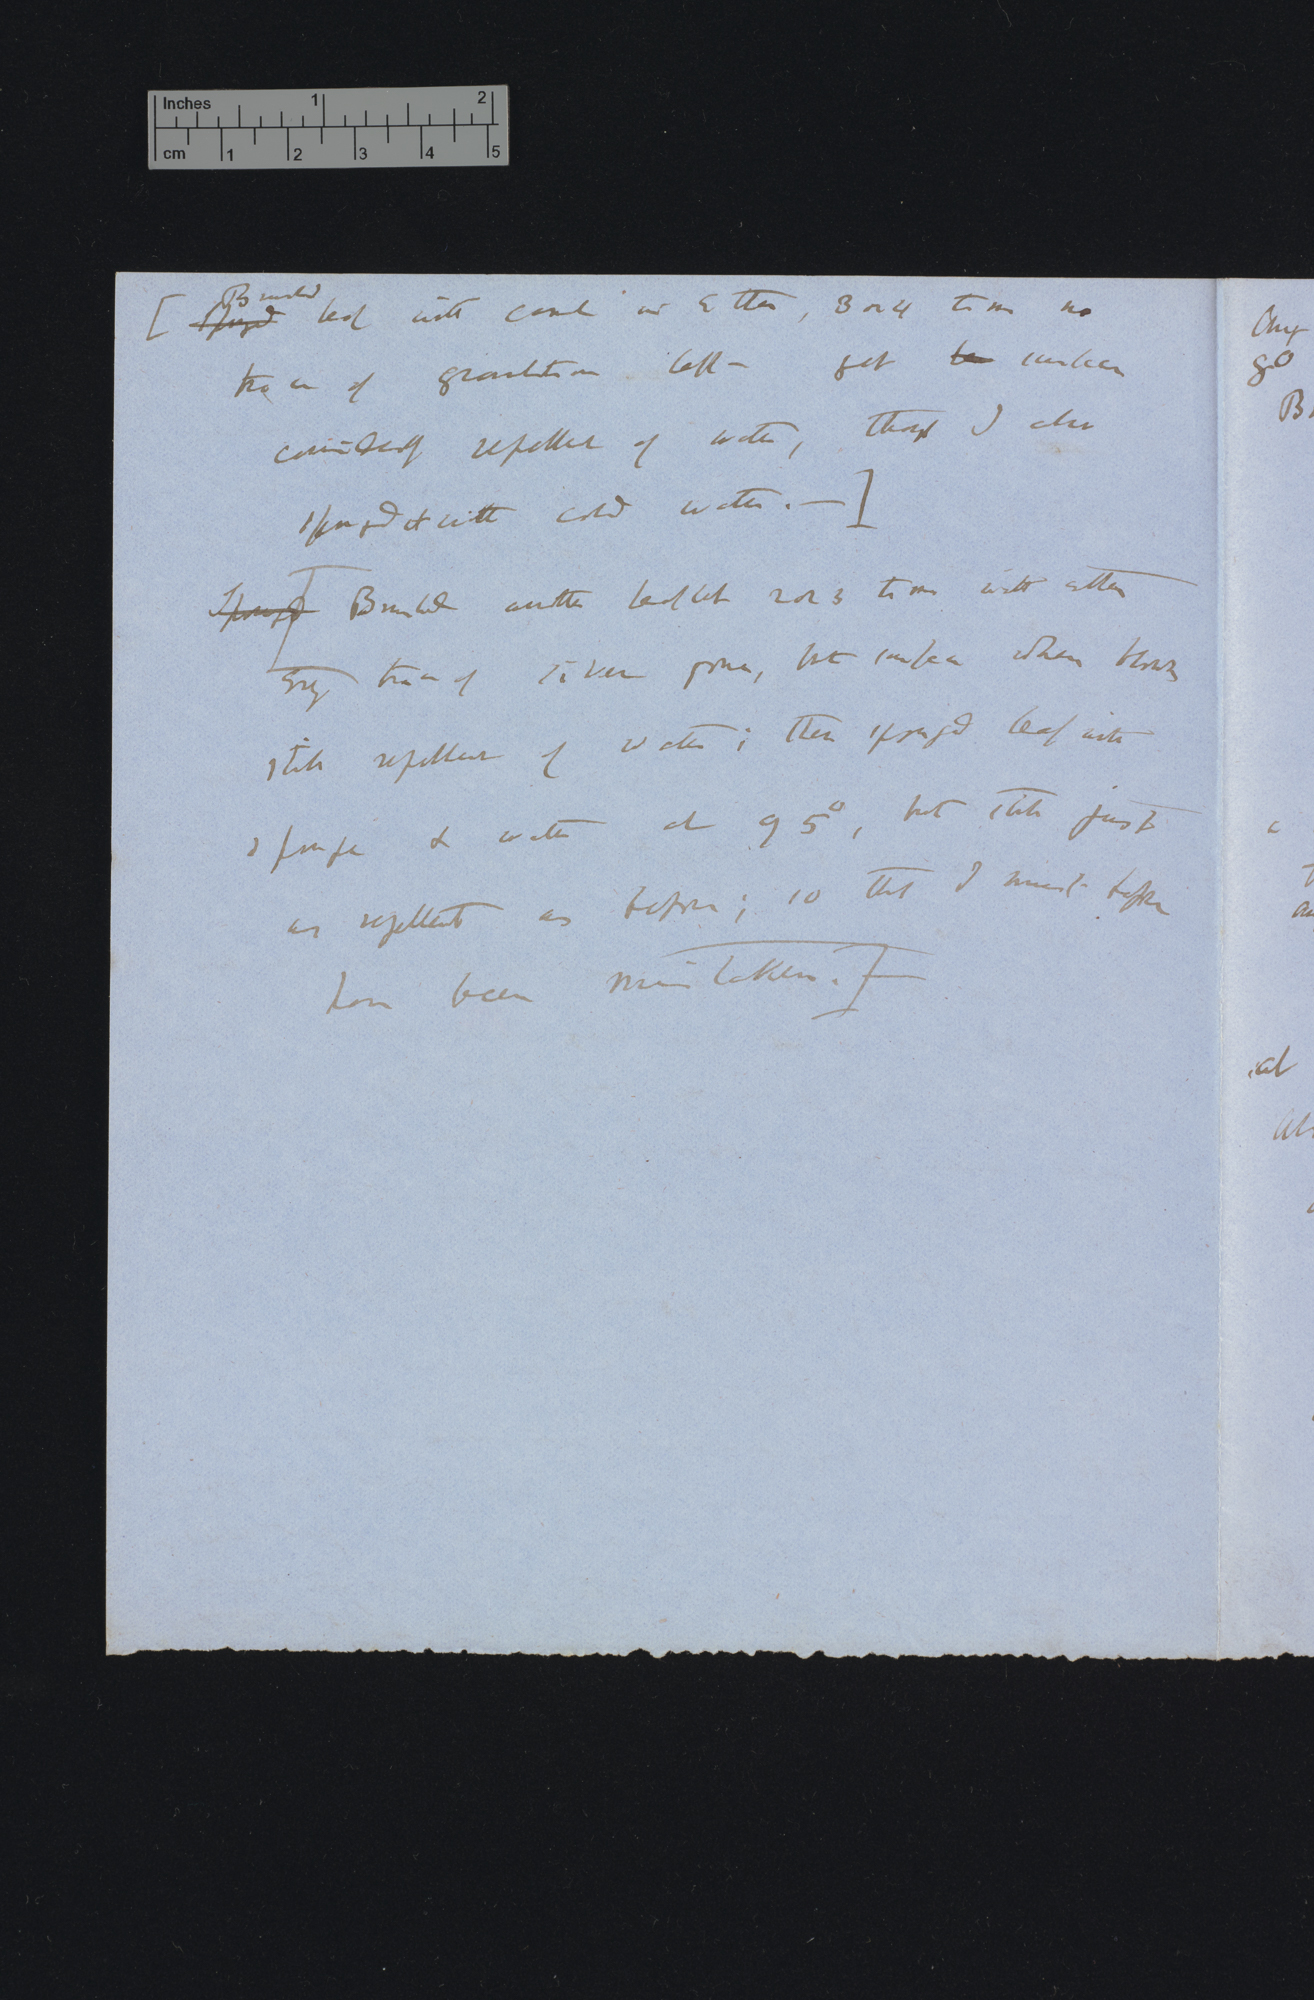 Inches 1 2
cm 1 2 3 4 5
Brushed
[ Sponged leaf with camel in Ether, 3 or 4 times no
trace of granulation left — yet be surface
considerably repellent of water, though I also
sponged it with cold water. — ]
Sponged [ Brushed another leaflet 2 or 3 times with ether
Every trace of silver gone, but surface when blown
still repellent of water; then sponged leaf with
sponge & water at 95°, but still just
as repellent as before; so that I must before
have been mistaken. ]
go
at